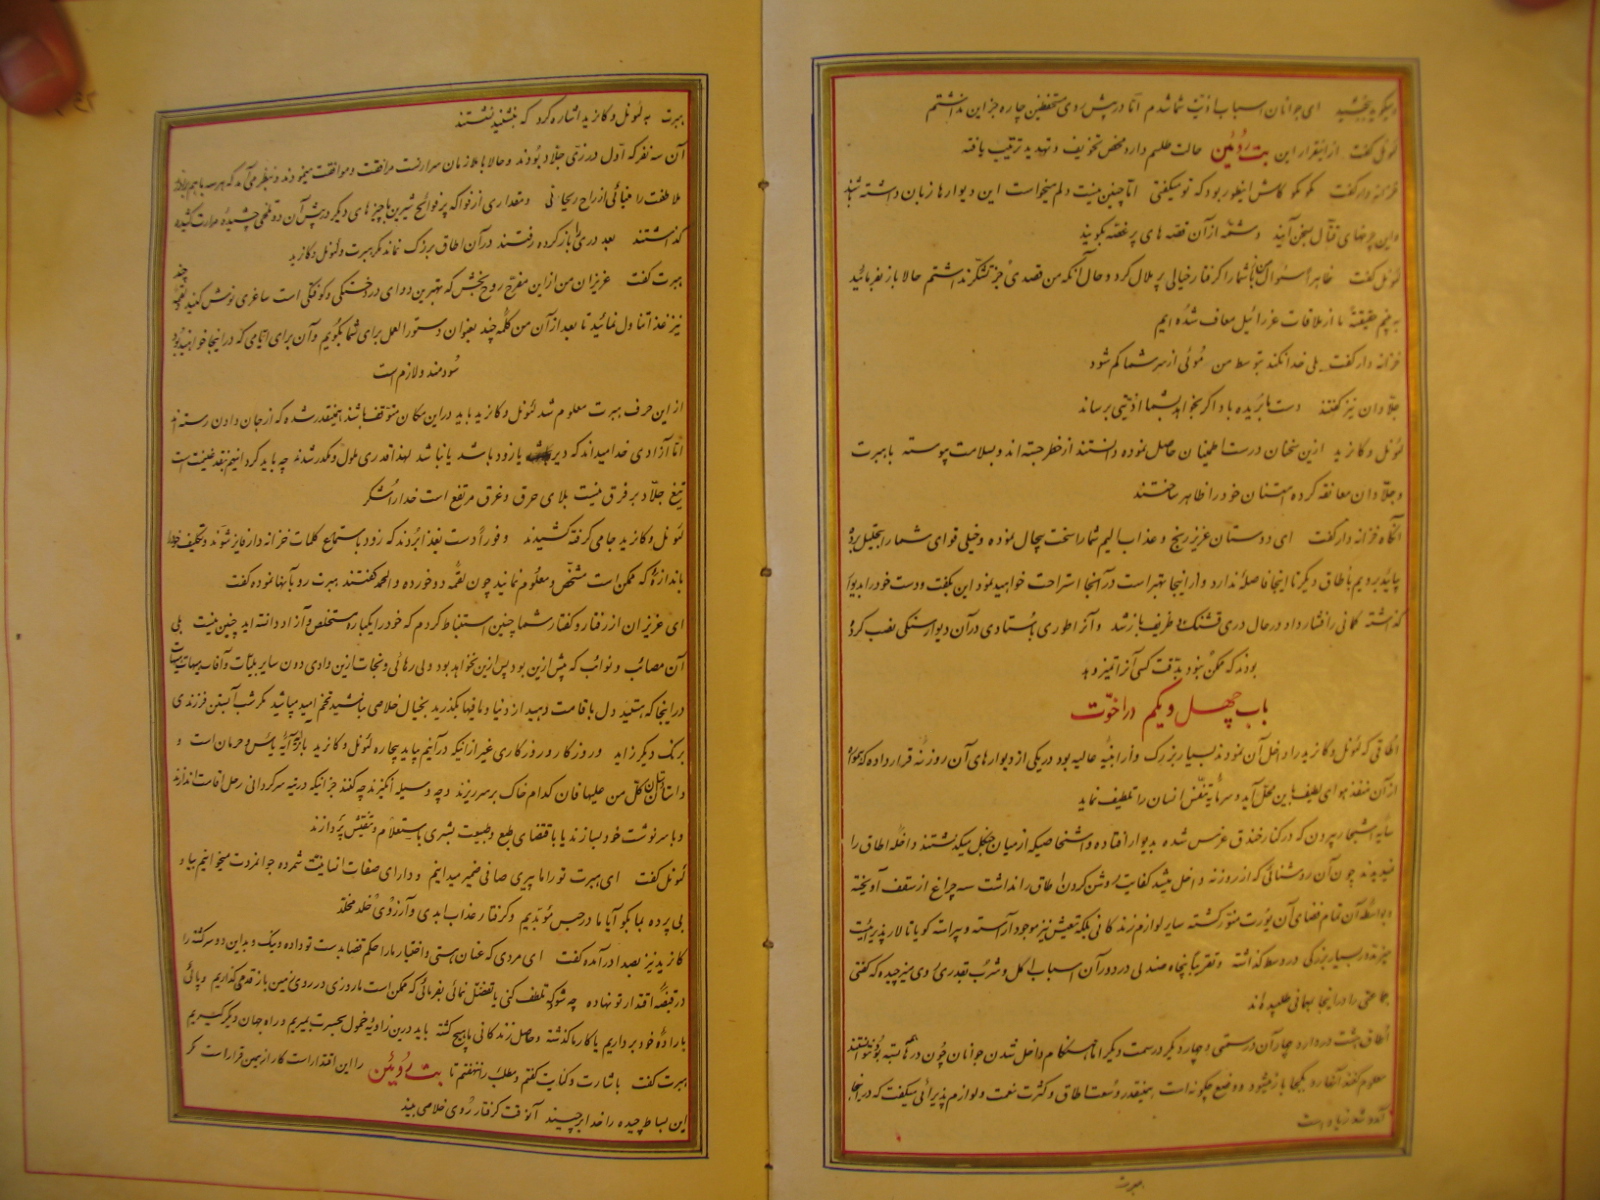 و میگوید ببخشید ای جوانان اسباب اذیت شما شدم اما در پیش روی مستحفظین چاره جز این نداشتم
لئونل گفت از اینقرار این بت روئین حالت طلسم دارد محض تخویف و تهدید ترتیب یافته
خزانه دار گفت مگو مگو کاش اینطور بود که تو میگفتی اما چنین نیست دلم میخواست این دیوارها زبان داشته باشند
و این چرخهای قتال بسخن آیند و شمه از آن قصه های پر غصه بگویند
لئونل گفت ظاهرا سؤال من شما را گرفتار خیالی پر ملال کرد و حال آنکه من قصدی جز تشکر نداشتم حالا باز بفرمائید
به بینم حقیقة ما از ملاقات عزرائیل معاف شده ایم
خزانه دار گفت بلی خدا نکند بتوسط من موئی از سر شما کم شود
جلادان نیز گفتند دست ما بریده باد اگر بخواهد بشما اذیتی برساند
لئونل و کازید ازین سخنان درست اطمینان حاصل نموده دانستند از خطر جسته اند و بسلامت پیوسته با هبرت
و جلادان معانقه کرده امتنان خود را ظاهر ساختند
آنگاه خزانه دار گفت ای دوستان عزیز رنج و عذاب الیم شما را سخت بیحال نموده و خیلی قوای شما را بتحلیل برده
بیائید برویم باطاق دیگر تا اینجا فاصله ندارد و از اینجا بهتر است در آنجا استراحت خواهید نمود این بگفت و دست خود را بدیوار
گذاشته کمانی را فشار داد در حال دری قشنگ و ظریف باز شد و آنرا طوری باستادی در آن دیوار سنگی نصب کرده
بودند که ممکن نبود بدقت کسی آنرا تمیز دهد
باب چهل و یکم در اخوت
اطاقی که لئونل و کازید را داخل آن نمودند بسیار بزرگ و از ابنیه عالیه بود در یکی از دیوارهای آن روزنه قرار داده که همواره
از آن منفذ هوای لطیف باین محل آید و سرمایه تنفس انسان را تلطیف نماید
سایه اشجار بیرون که در کنار خندق غرس شده بدیوار افتاده و اشخاصیکه از میان جنگل میگذشتند داخله اطاق را
نمیدیدند چون آن روشنائی که از روزنه داخل میشد کفایت روشن کردن اطاق را نداشت سه چراغ از سقف آویخته
و بواسطه آن تمام فضای آن بیورت منور گشته سایر لوازم زندگانی بلکه تعیش نیز موجود آراسته و پیراسته گویا تالار پذیرائیست
میز مدور بسیار بزرگی در وسط گذاشته و تقریبا پنجاه صندلی در دور آن اسباب اکل و شرب بقدری روی میز چیده که گفتی
جماعتی را در اینجا بمهمانی طلبیده اند
اطاق هشت در دارد چهار آن در سمتی و چهار دیگر در سمت دیگر اما هنگام داخل شدن جوانان چون درها همه بسته بود نتوانستند
معلوم کنند آنها رو بکجا باز میشود و وضع چگونه است همینقدر وسعت اطاق و کثرت نعمت و لوازم پذیرائی میگفت که در اینجا
آمد و شد زیاد است
هبرت
هبرت به لئونل و کازید اشاره کرد که بنشنید نشستند
آن سه نفر که اول در زی جلاد بودند و حالا با ملازمان سرا رفت مرافقت و موافقت مینمودند و بنظر می آمد که هر سه با هم
ملاطفت را مینائی از راح ریحانی و مقداری از فواکه پر فوایح شیرین با چیزهای دیگر در پیش آن دو تلخی چشیده مرارت کشیده
گذاشتند بعد دری را باز کرده رفتند در آن اطاق بزرگ نماند مگر هبرت و لئونل و کازید
هبرت گفت عزیزان من از این مفرح روح بخش که بهترین دوای درد خستگی و کوفتگی است ساغری نوش کنید چند لقمه
نیز غذا تناول نمائید تا بعد از آن من کلمه چند بعنوان دستورالعمل برای شما بگویم و آن برای ایامی که در اینجا خواهید بود
سودمند و لازم است
از این حرف هبرت معلوم شد لئونل و کازید باید در این مکان متوقف باشند همینقدر شده که از جان دادن رسته اند
اما آزادی خدا میداند که دیر یا زود باشد یا نباشد لهذا قدری ملول و مکدر شدند چه باید کرد اینهم نقد غنیمت است
تیغ جلاد بر فرق نیست بلای حرق و غرق مرتفع است خدا را شکر
لئونل و کازید جامی گرفته کشیدند و فورا دست بغذا بردند که زود باستماع کلمات خزانه دار فایز شوند و تکلیف خود را
باندازه که ممکن است مشخص و معلوم نمایند چون لقمه دو خورده و الحمد گفتند هبرت رو بآنها نموده گفت
ای عزیزان از رفتار و گفتار شما چنین استنباط کردم که خود را یکباره مستخلص و آزاد دانسته اید چنین نیست بلی
آن مصائب و نوائب که پیش ازین بود پس ازین نخواهد بود ولی رهائی و نجات ازین وادی دون سایر بلیات و آفات هیهات است
در اینجا که هستید دل باقامت دهید از دنیا و مافیها بگذرید بخیال خلاصی نباشید تخم امید مپاشید مگر شب آبستن فرزندی
برنگ دیگر زاید و روزگار روزگاری غیر از اینکه در آنیم بیاید بیچاره لئونل و کازید باز اول آیه یأس و حرمان است و
داستان کل من علیها فان کدام خاک بر سر ریزند و چه وسیله انگیزند چه کنند جز اینکه در تیه سرگردانی رحل اقامت اندازند
و با سرنوشت خود بسازند یا باقتضای طبع و طبیعت بشری باستعلام و تفتیش پردازند
لئونل گفت ای هبرت تو را ما پیری صافی ضمیر میدانیم و دارای صفات انسانیت شمرده جوانمردت میخوانیم بیا و
بی پرده بما بگو آیا ما در حبس مؤبدیم و گرفتار عذاب ابدی و آرزوی خلد مخلد
کازید نیز بصدا درآمده گفت ای مردی که عنان هستی و اختیار ما را حکم قضا بدست تو داده و نیک و بد این دو سرگشته را
در قبضه اقتدار تو نهاده چه شود که تلطف کنی یا تفضل نمائی بفرمائی که ممکن است ما روزی در روی زمین باز قدمی گذاریم و پائی
باراده خود برداریم یا کار ما گذشته و حاصل زندگانی ما هیچ گشته باید درین زاویه خمول بحسرت بمیریم و راه جهان دیگر گیریم
هبرت گفت باشارت و کنایت گفتم و مطلب را نهفتم تا بت روئین را این اقتدار است کار از همین قرار است مگر
این بساط چیده را خدا برچیند آنوقت گرفتار روی خلاصی بیند